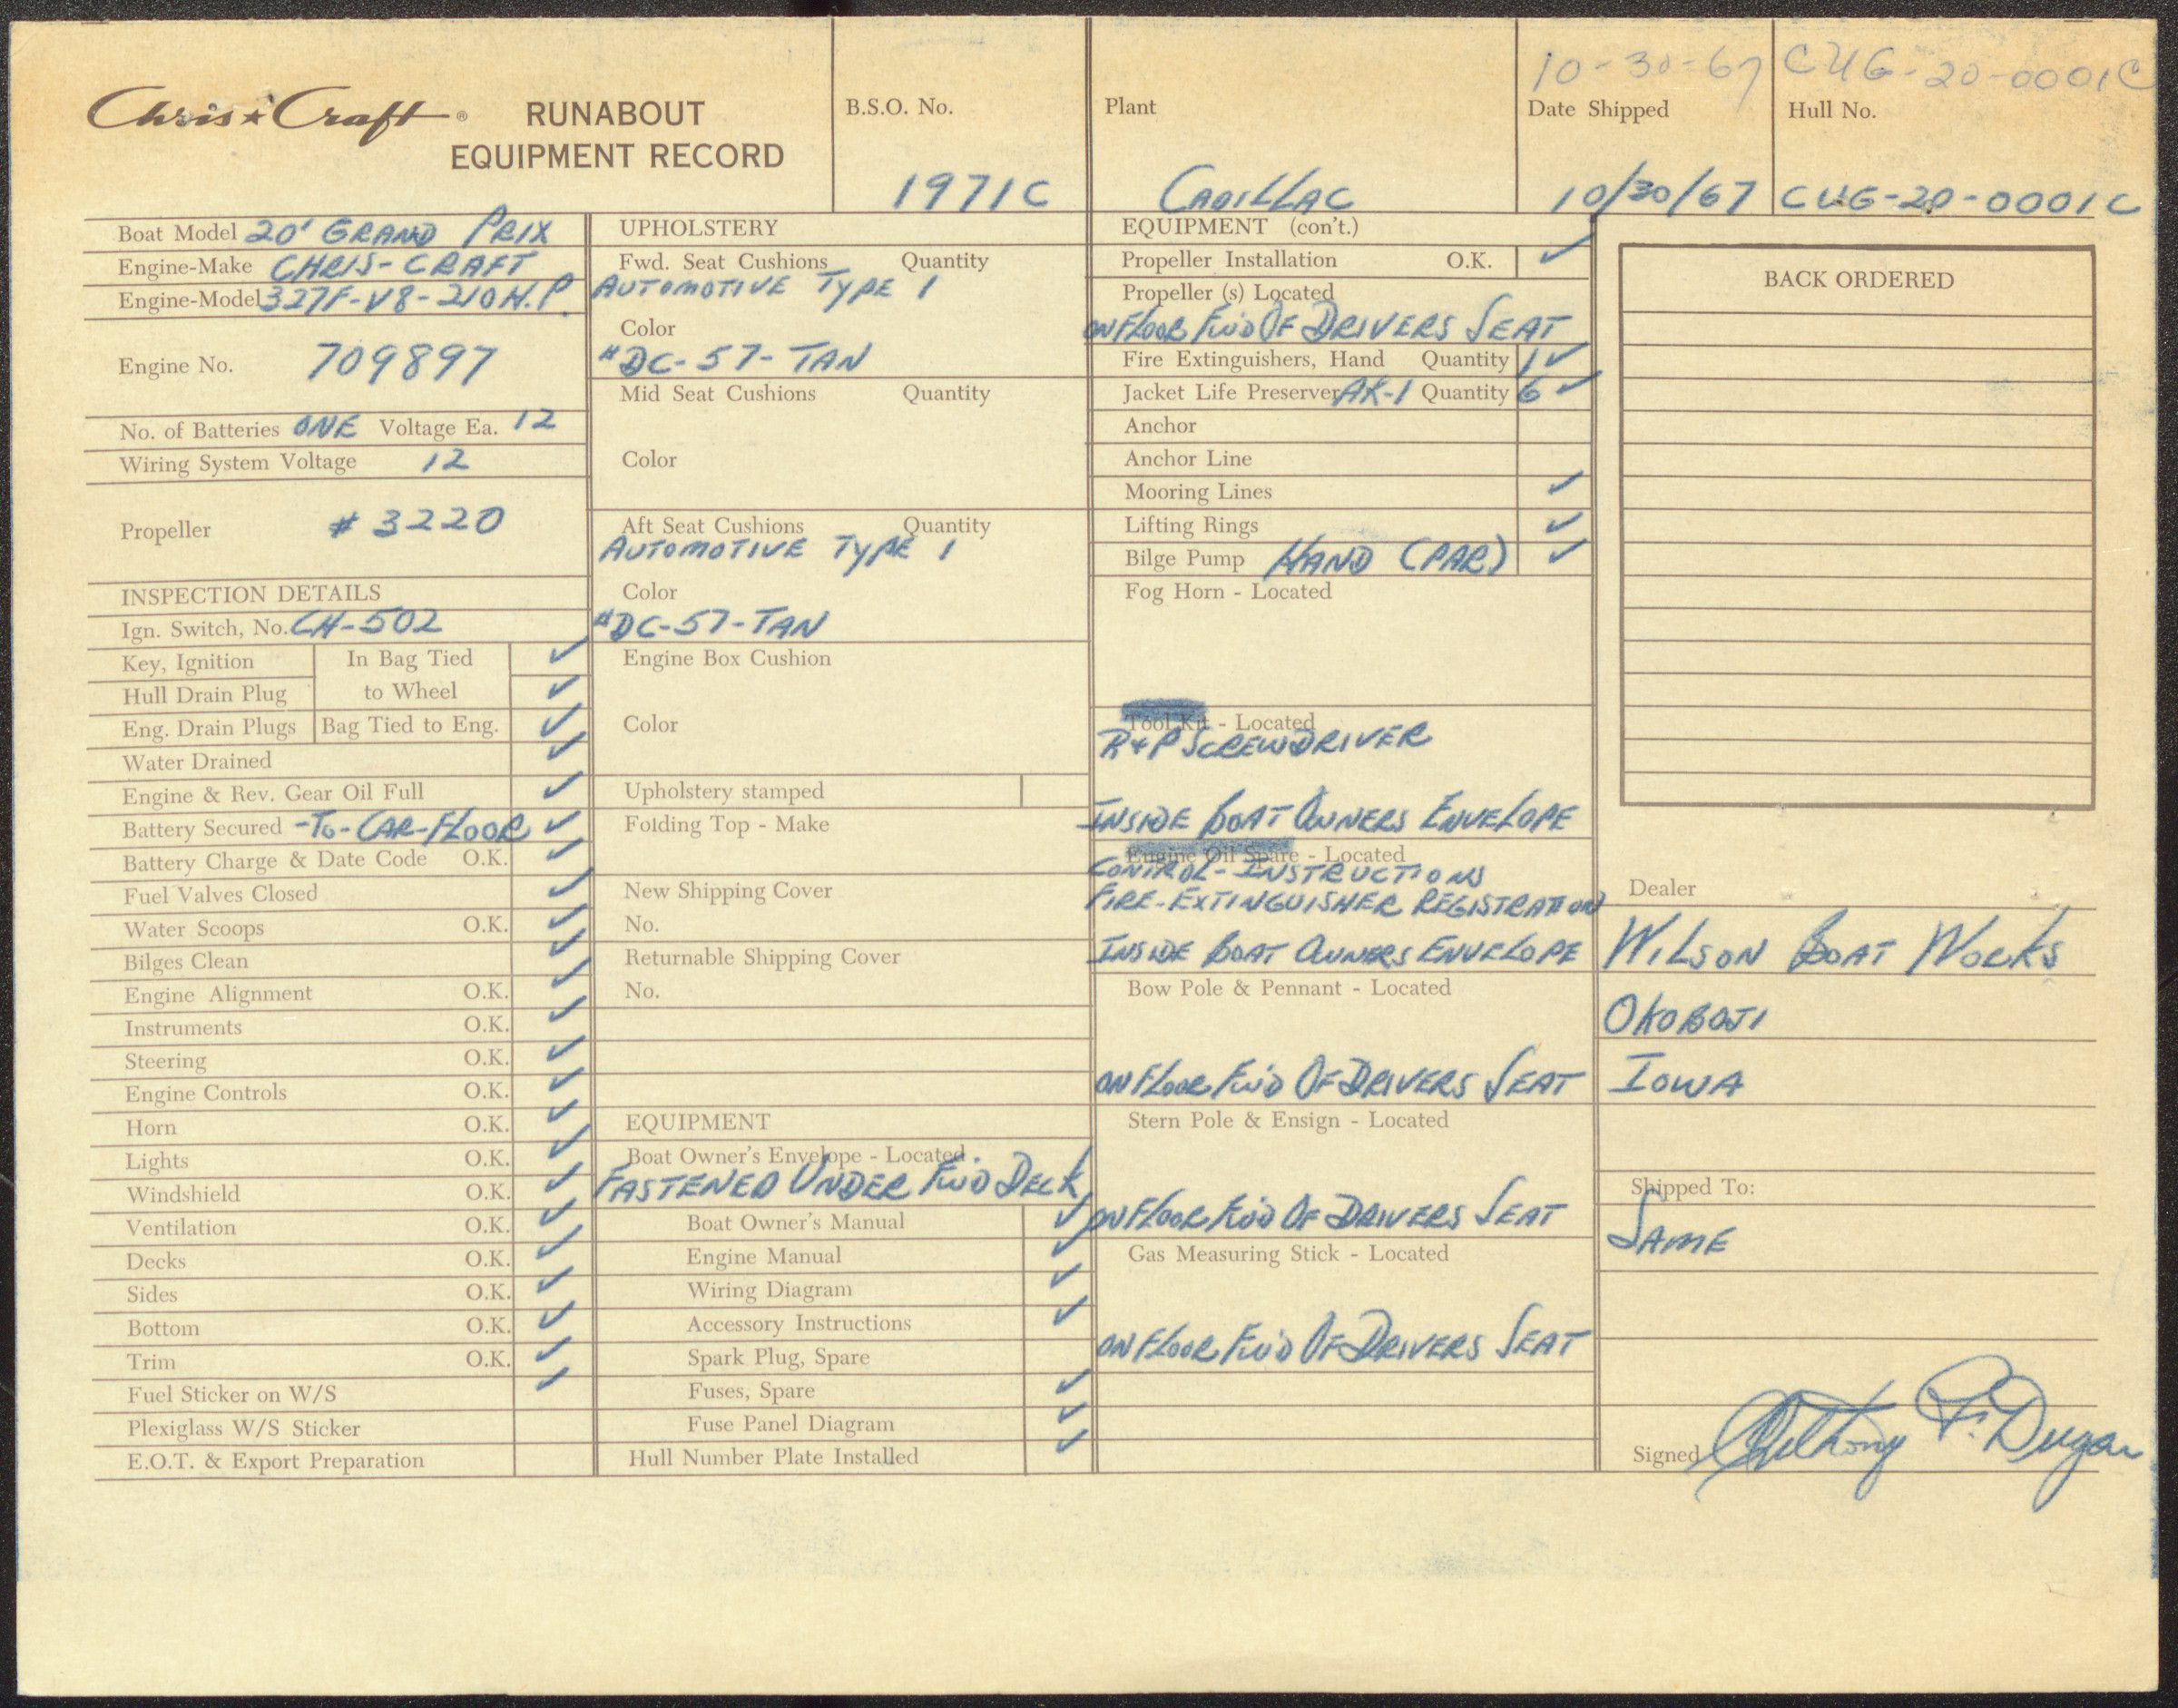 Chris★Craft® RUNABOUT
EQUIPMENT RECORD
B.S.O. No.
1971C
Plant
CADILLAC
10-30-67
Date Shipped
10/30/67
CUG-20-0001C
Hull No.
CUG-20-0001C
Boat Model 20' GRAND PRIX
Engine-Make CHRIS-CRAFT
Engine-Model 327F-V8-210 H.P.
Engine No. 709897
No. of Batteries ONE Voltage Ea. 12
Wiring System Voltage 12
Propeller # 3220
INSPECTION DETAILS
Ign. Switch, No. CH-502
Key, Ignition In Bag Tied ✓
Hull Drain Plug to Wheel ✓
Eng. Drain Plugs Bag Tied to Eng. ✓
Water Drained ✓
Engine & Rev. Gear Oil Full ✓
Battery Secured -TO-CAR-FLOOR ✓
Battery Charge & Date Code O.K. ✓
Fuel Valves Closed ✓
Water Scoops O.K. ✓
Bilges Clean ✓
Engine Alignment O.K. ✓
Instruments O.K. ✓
Steering O.K. ✓
Engine Controls O.K. ✓
Horn O.K. ✓
Lights O.K. ✓
Windshield O.K. ✓
Ventilation O.K. ✓
Decks O.K. ✓
Sides O.K. ✓
Bottom O.K. ✓
Trim O.K. ✓
Fuel Sticker on W/S ✓
Plexiglass W/S Sticker
E.O.T. & Export Preparation
UPHOLSTERY
Fwd. Seat Cushions Quantity
AUTOMOTIVE TYPE 1
Color
#DC-57-TAN
Mid Seat Cushions Quantity
Color
Aft Seat Cushions Quantity
AUTOMOTIVE TYPE 1
Color
#DC-57-TAN
Engine Box Cushion
Color
Upholstery stamped
Folding Top - Make
New Shipping Cover
No.
Returnable Shipping Cover
No.
EQUIPMENT
Boat Owner's Envelope - Located
FASTENED UNDER FWD DECK
Boat Owner's Manual ✓
Engine Manual ✓
Wiring Diagram ✓
Accessory Instructions ✓
Spark Plug, Spare
Fuses, Spare ✓
Fuse Panel Diagram ✓
Hull Number Plate Installed ✓
EQUIPMENT (con't.)
Propeller Installation O.K. ✓
Propeller (s) Located
ON FLOOR FWD OF DRIVERS SEAT
Fire Extinguishers, Hand Quantity 1 ✓
Jacket Life Preserver AK-1 Quantity 6 ✓
Anchor
Anchor Line
Mooring Lines ✓
Lifting Rings ✓
Bilge Pump HAND (PAR) ✓
Fog Horn - Located
Tool Kit - Located
R&P SCREWDRIVER
INSIDE BOAT OWNERS ENVELOPE
Engine Oil Spare - Located
CONTROL-INSTRUCTIONS
FIRE-EXTINGUISHER REGISTRATION
INSIDE BOAT OWNERS ENVELOPE
Bow Pole & Pennant - Located
ON FLOOR FWD OF DRIVERS SEAT
Stern Pole & Ensign - Located
ON FLOOR FWD OF DRIVERS SEAT
Gas Measuring Stick - Located
ON FLOOR FWD OF DRIVERS SEAT
BACK ORDERED
Dealer
WILSON BOAT WORKS
OKOBOJI
IOWA
Shipped To:
SAME
Signed Anthony F. Dugan